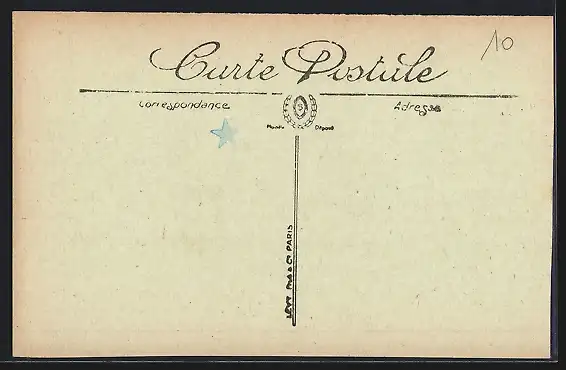 10
Carte Postale
Correspondance
Adresse
S
Marque Déposé
LÉVY Fils & Cie PARIS